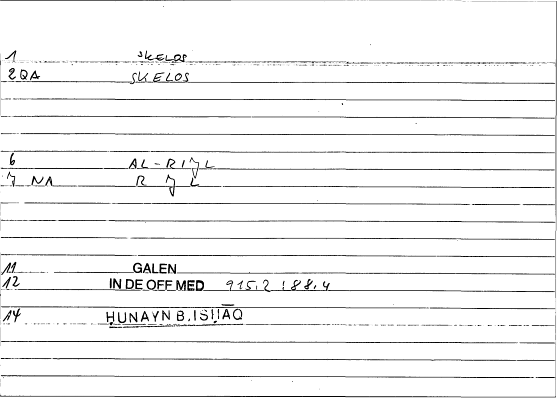 1 SKELOS
2QA SKELOS
6 AL-RIJL
7 NA R J L
11 GALEN
12 IN DE OFF MED 915.2 : 88.4
14 ḤUNAYN B. ISḤĀQ